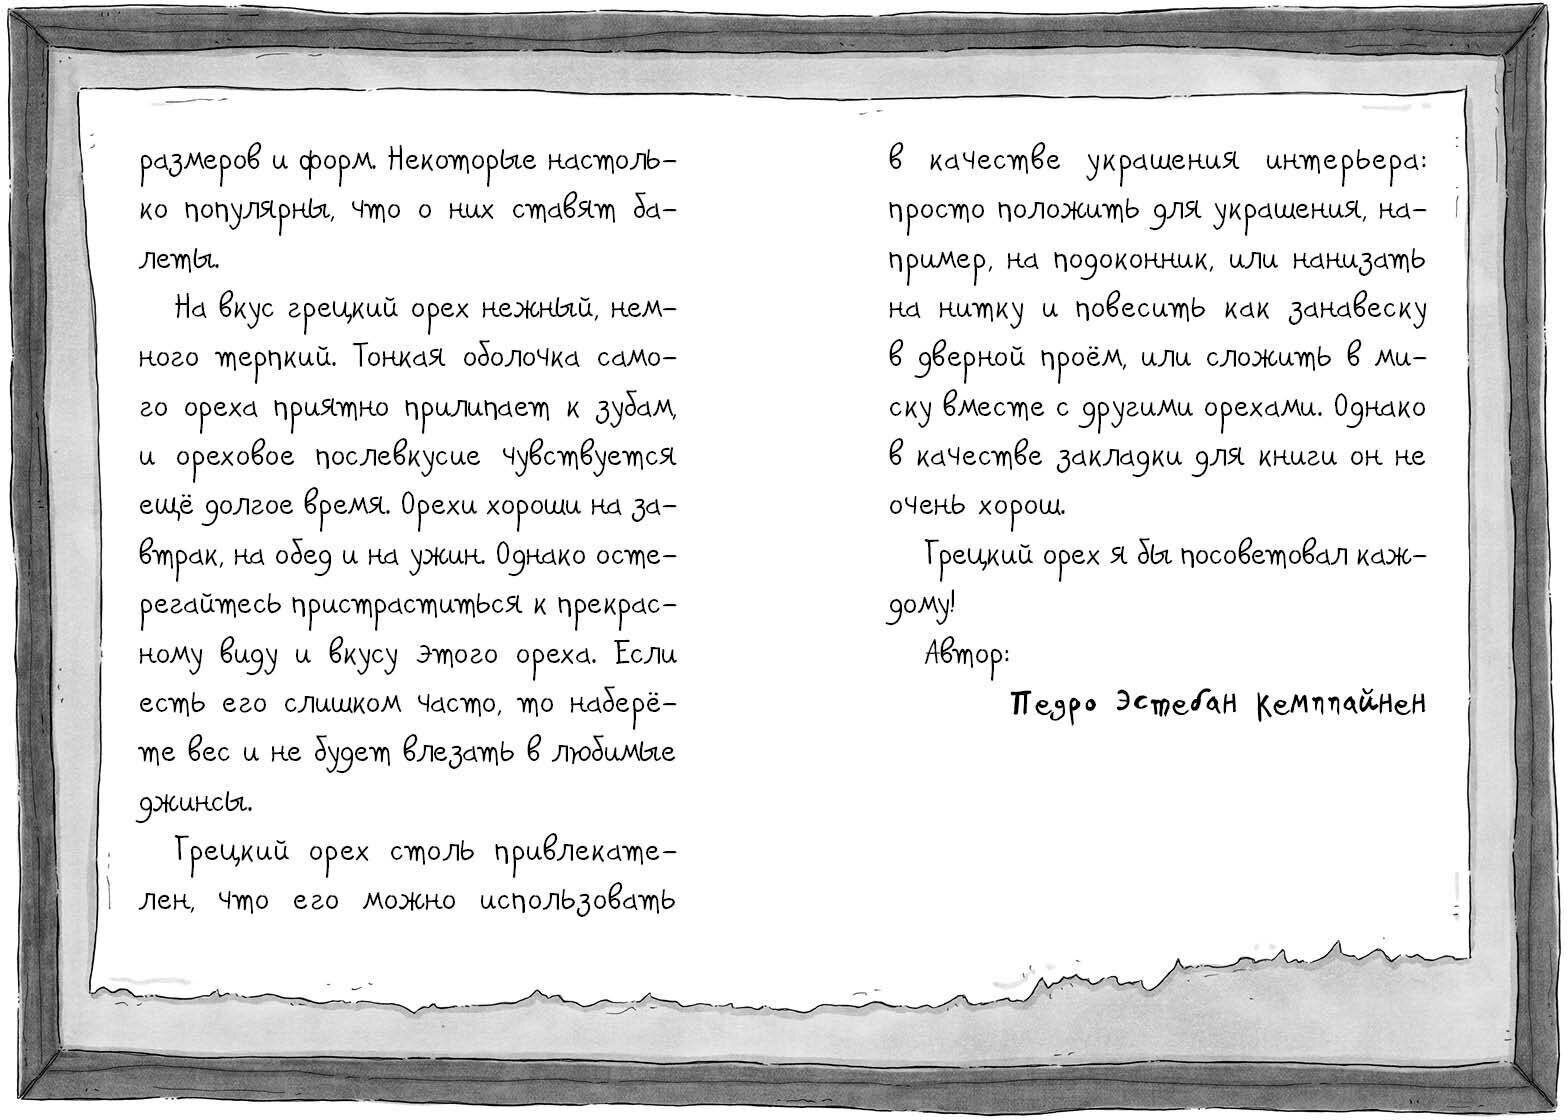 размеров и форм. Некоторые настоль-
ко популярны, что о них ставят ба-
леты.
На вкус грецкий орех нежный, нем-
ного терпкий. Тонкая оболочка само-
го ореха приятно прилипает к зубам,
и ореховое послевкусие чувствуется
ещё долгое время. Орехи хороши на за-
втрак, на обед и на ужин. Однако осте-
регайтесь пристраститься к прекрас-
ному виду и вкусу этого ореха. Если
есть его слишком часто, то наберё-
те вес и не будет влезать в любимые
джинсы.
Грецкий орех столь привлекате-
лен, что его можно использовать
в качестве украшения интерьера:
просто положить для украшения, на-
пример, на подоконник, или нанизать
на нитку и повесить как занавеску
в дверной проём, или сложить в ми-
ску вместе с другими орехами. Однако
в качестве закладки для книги он не
очень хорош.
Грецкий орех я бы посоветовал каж-
дому!
Автор:
Педро Эстебан Кемппайнен